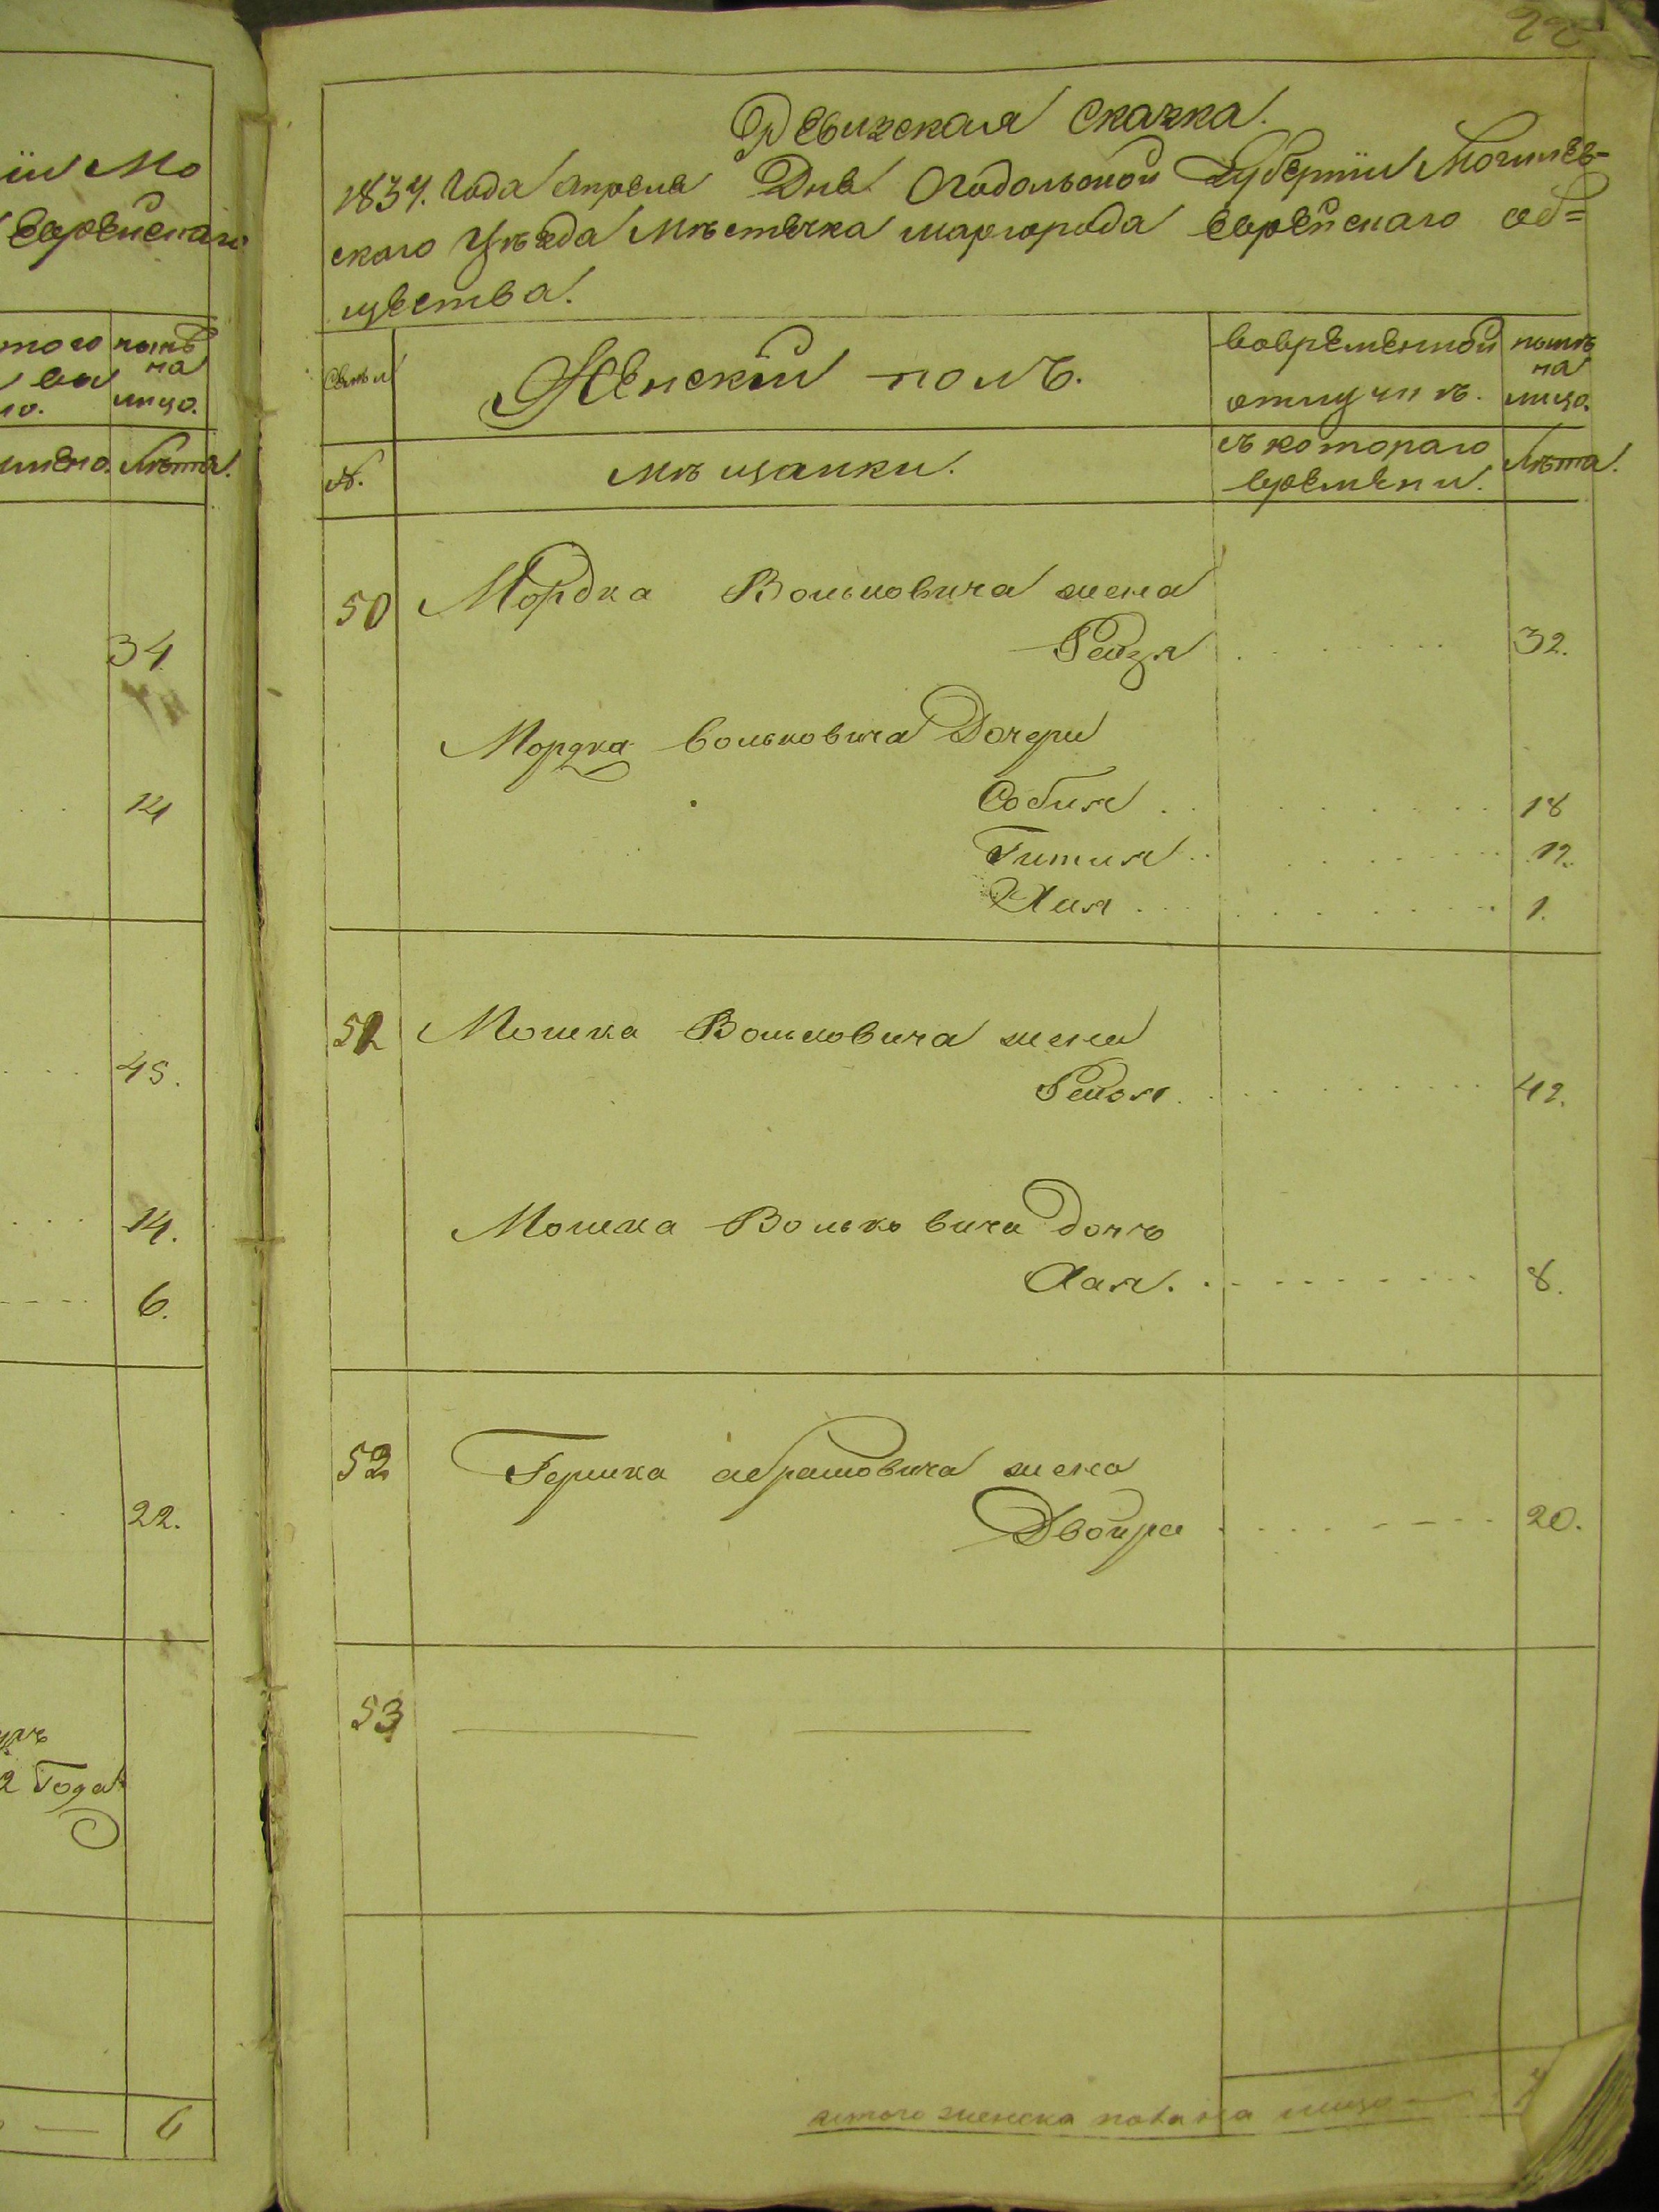 22
Ревизская сказка.
1834. Года Апреля Дня Подольской Губернии Могилев-
скаго Уѣзда Мѣстечка шаргорода Еврейскаго об=
щества.
Семьи
Женскій полъ.
вовременной
отлучкѣ.
нынѣ
на
лицо.
№.
мѣщанки.
съ котораго
времени.
Лѣта.
50 Мордка Вольковича жена
Рейзя 32.
Мордка Вольковича Дочери
Собия 18
Гития 12.
Хия 1.
51 Мошка Вольковича жена
42.
Мошка Вольковича дочь
Хая. 8.
52 Гершка абрамовича жена
Двойра 20.
53
итого женска пола на лицо
іи Мо
Еврейскаго
нынѣ
на
лицо.
Лѣта.
34
14
45.
14.
6.
22.
2 Года
6